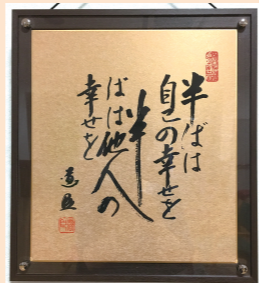 半ばは
自己の幸せを
半
ばは他人の
幸せを
道臣